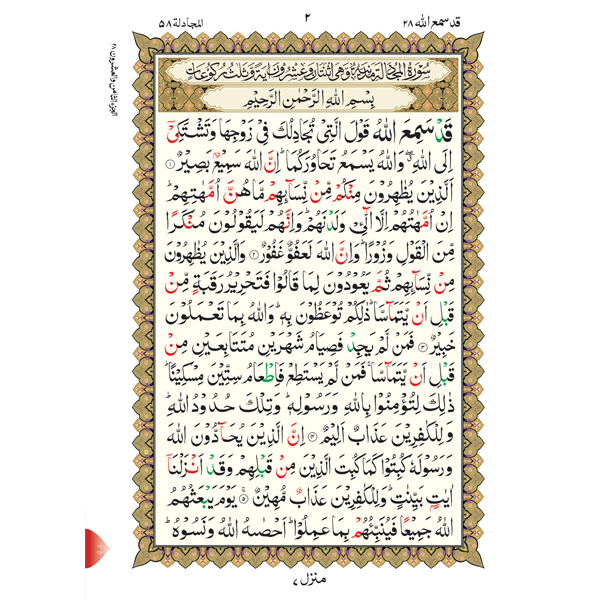 قد سمع الله ٢٨
٢
المجادلة ٥٨
الجزء الثامن والعشرون ٢٨
سُوْرَةُ الْمُجَادَلَةِ مَدَنِيَّةٌ وَّهِيَ اثْنَتَانِ وَعِشْرُوْنَ اٰيَةً وَّثَلٰثُ رُكُوْعَاتٍ
بِسْمِ اللهِ الرَّحْمٰنِ الرَّحِيْمِ
قَدْ سَمِعَ اللهُ قَوْلَ الَّتِيْ تُجَادِلُكَ فِيْ زَوْجِهَا وَتَشْتَكِيْٓ
اِلَى اللهِ ۖ وَاللهُ يَسْمَعُ تَحَاوُرَكُمَا ؕ اِنَّ اللهَ سَمِيْعٌۢ بَصِيْرٌ ﴿١﴾
اَلَّذِيْنَ يُظٰهِرُوْنَ مِنْكُمْ مِّنْ نِّسَآىِٕهِمْ مَّا هُنَّ اُمَّهٰتِهِمْ ؕ
اِنْ اُمَّهٰتُهُمْ اِلَّا الّٰٓـِٔيْ وَلَدْنَهُمْ ؕ وَاِنَّهُمْ لَيَقُوْلُوْنَ مُنْكَرًا
مِّنَ الْقَوْلِ وَزُوْرًا ؕ وَاِنَّ اللهَ لَعَفُوٌّ غَفُوْرٌ ﴿٢﴾ وَالَّذِيْنَ يُظٰهِرُوْنَ
مِنْ نِّسَآىِٕهِمْ ثُمَّ يَعُوْدُوْنَ لِمَا قَالُوْا فَتَحْرِيْرُ رَقَبَةٍ مِّنْ
قَبْلِ اَنْ يَّتَمَآسَّا ؕ ذٰلِكُمْ تُوْعَظُوْنَ بِهٖ ؕ وَاللهُ بِمَا تَعْمَلُوْنَ
خَبِيْرٌ ﴿٣﴾ فَمَنْ لَّمْ يَجِدْ فَصِيَامُ شَهْرَيْنِ مُتَتَابِعَيْنِ مِنْ
قَبْلِ اَنْ يَّتَمَآسَّا ۚ فَمَنْ لَّمْ يَسْتَطِعْ فَاِطْعَامُ سِتِّيْنَ مِسْكِيْنًا ؕ
ذٰلِكَ لِتُؤْمِنُوْا بِاللهِ وَرَسُوْلِهٖ ؕ وَتِلْكَ حُدُوْدُ اللهِ ؕ
وَلِلْكٰفِرِيْنَ عَذَابٌ اَلِيْمٌ ﴿٤﴾ اِنَّ الَّذِيْنَ يُحَآدُّوْنَ اللهَ
وَرَسُوْلَهٗ كُبِتُوْا كَمَا كُبِتَ الَّذِيْنَ مِنْ قَبْلِهِمْ وَقَدْ اَنْزَلْنَآ
اٰيٰتٍۭ بَيِّنٰتٍ ؕ وَلِلْكٰفِرِيْنَ عَذَابٌ مُّهِيْنٌ ﴿٥﴾ يَوْمَ يَبْعَثُهُمُ
اللهُ جَمِيْعًا فَيُنَبِّئُهُمْ بِمَا عَمِلُوْا ؕ اَحْصٰىهُ اللهُ وَنَسُوْهُ ؕ
منزل ٧